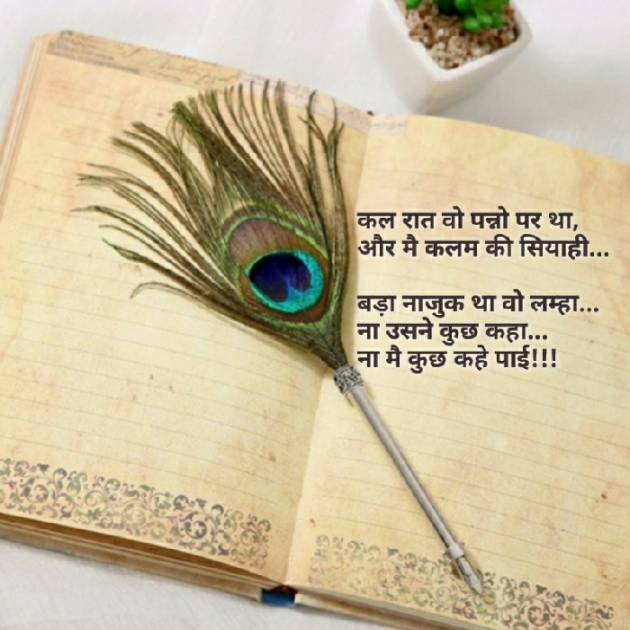 कल रात वो पन्नो पर था,
और मै कलम की सियाही...
बड़ा नाजुक था वो लम्हा...
ना उसने कुछ कहा...
ना मै कुछ कहे पाई!!!